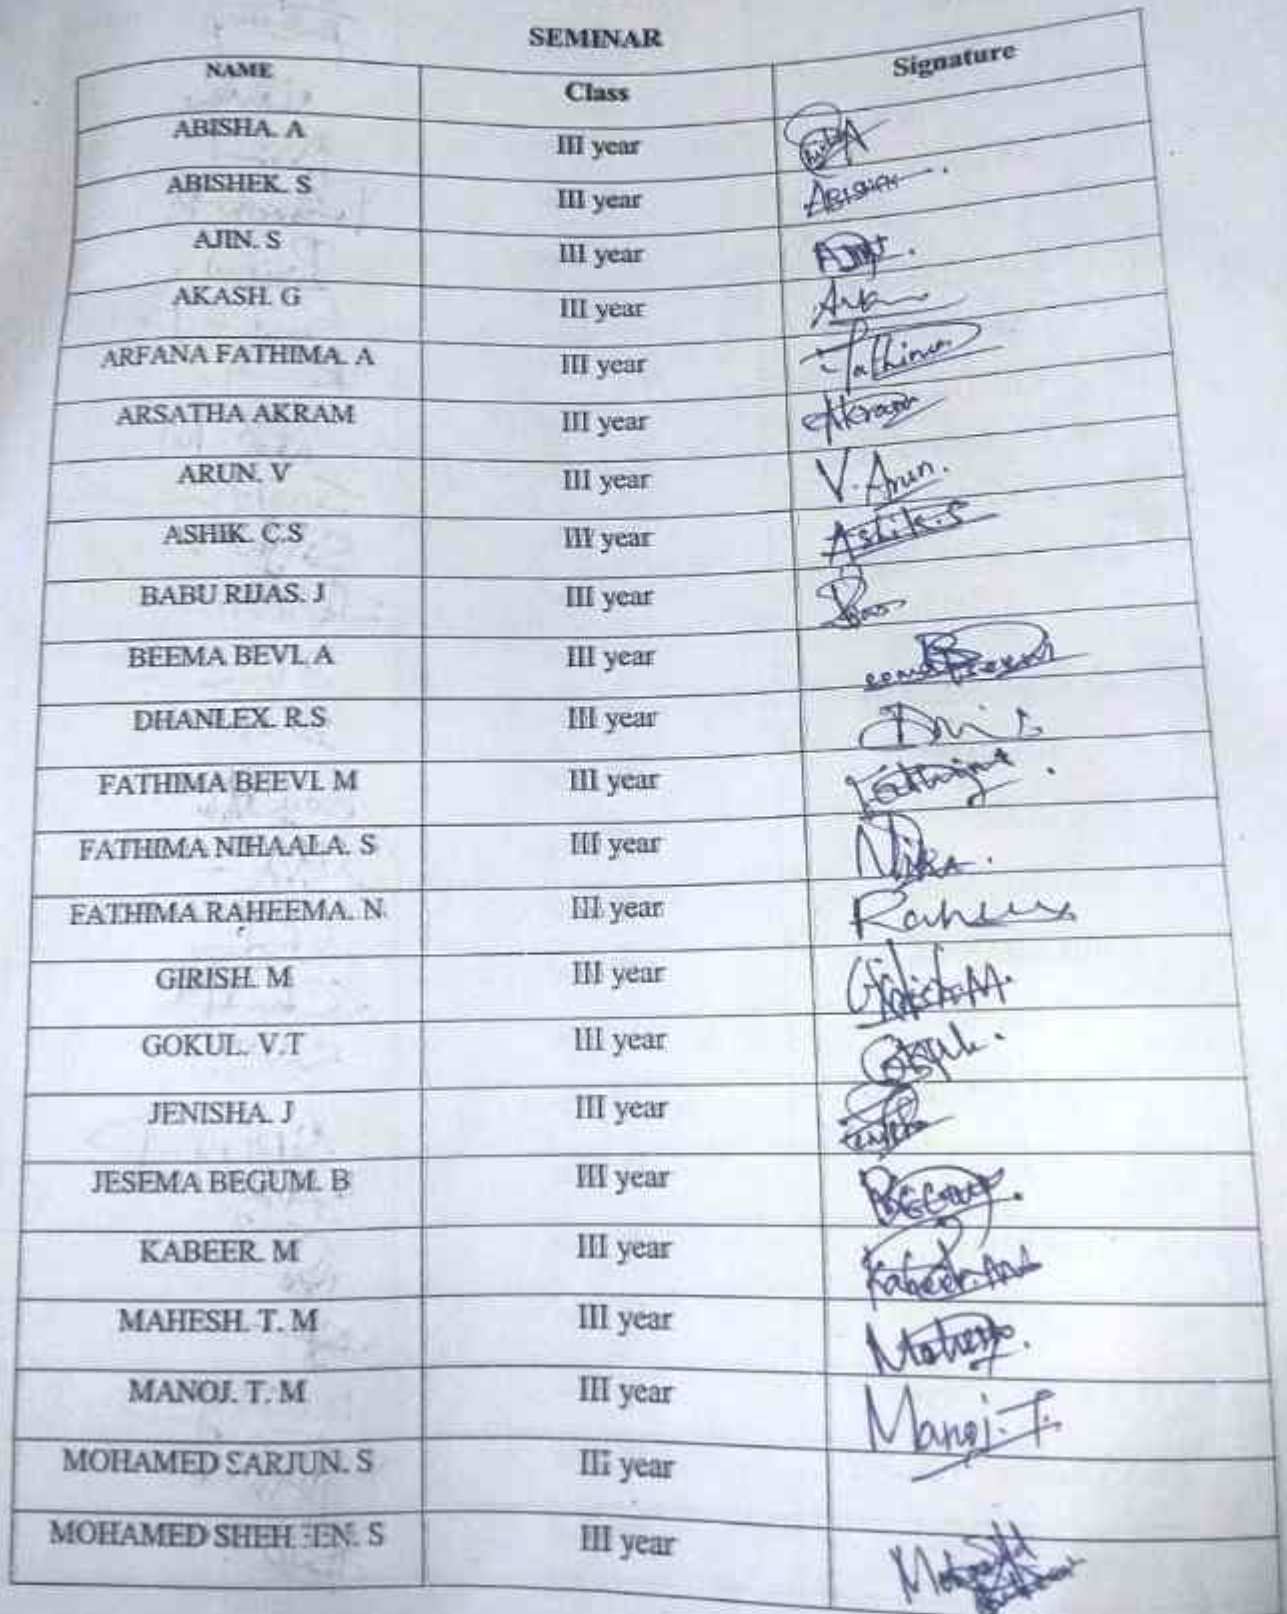 SEMINAR
NAME Class Signature
ABISHA. A III year
ABISHEK. S III year ABISHEK.
AJIN. S III year
AKASH. G III year
ARFANA FATHIMA. A III year Fathima
ARSATHA AKRAM III year Akram
ARUN. V III year V. Arun.
ASHIK. C.S III year Ashik.S
BABU RIJAS. J III year
BEEMA BEVI. A III year
DHANLEX. R.S III year
FATHIMA BEEVI. M III year
FATHIMA NIHAALA. S III year
FATHIMA RAHEEMA. N III year
GIRISH. M III year Girish.M.
GOKUL. V.T III year Gokul.
JENISHA. J III year
JESEMA BEGUM. B III year
KABEER. M III year
MAHESH. T. M III year
MANOJ. T. M III year Manoj.T.
MOHAMED SARJUN. S III year
MOHAMED III year